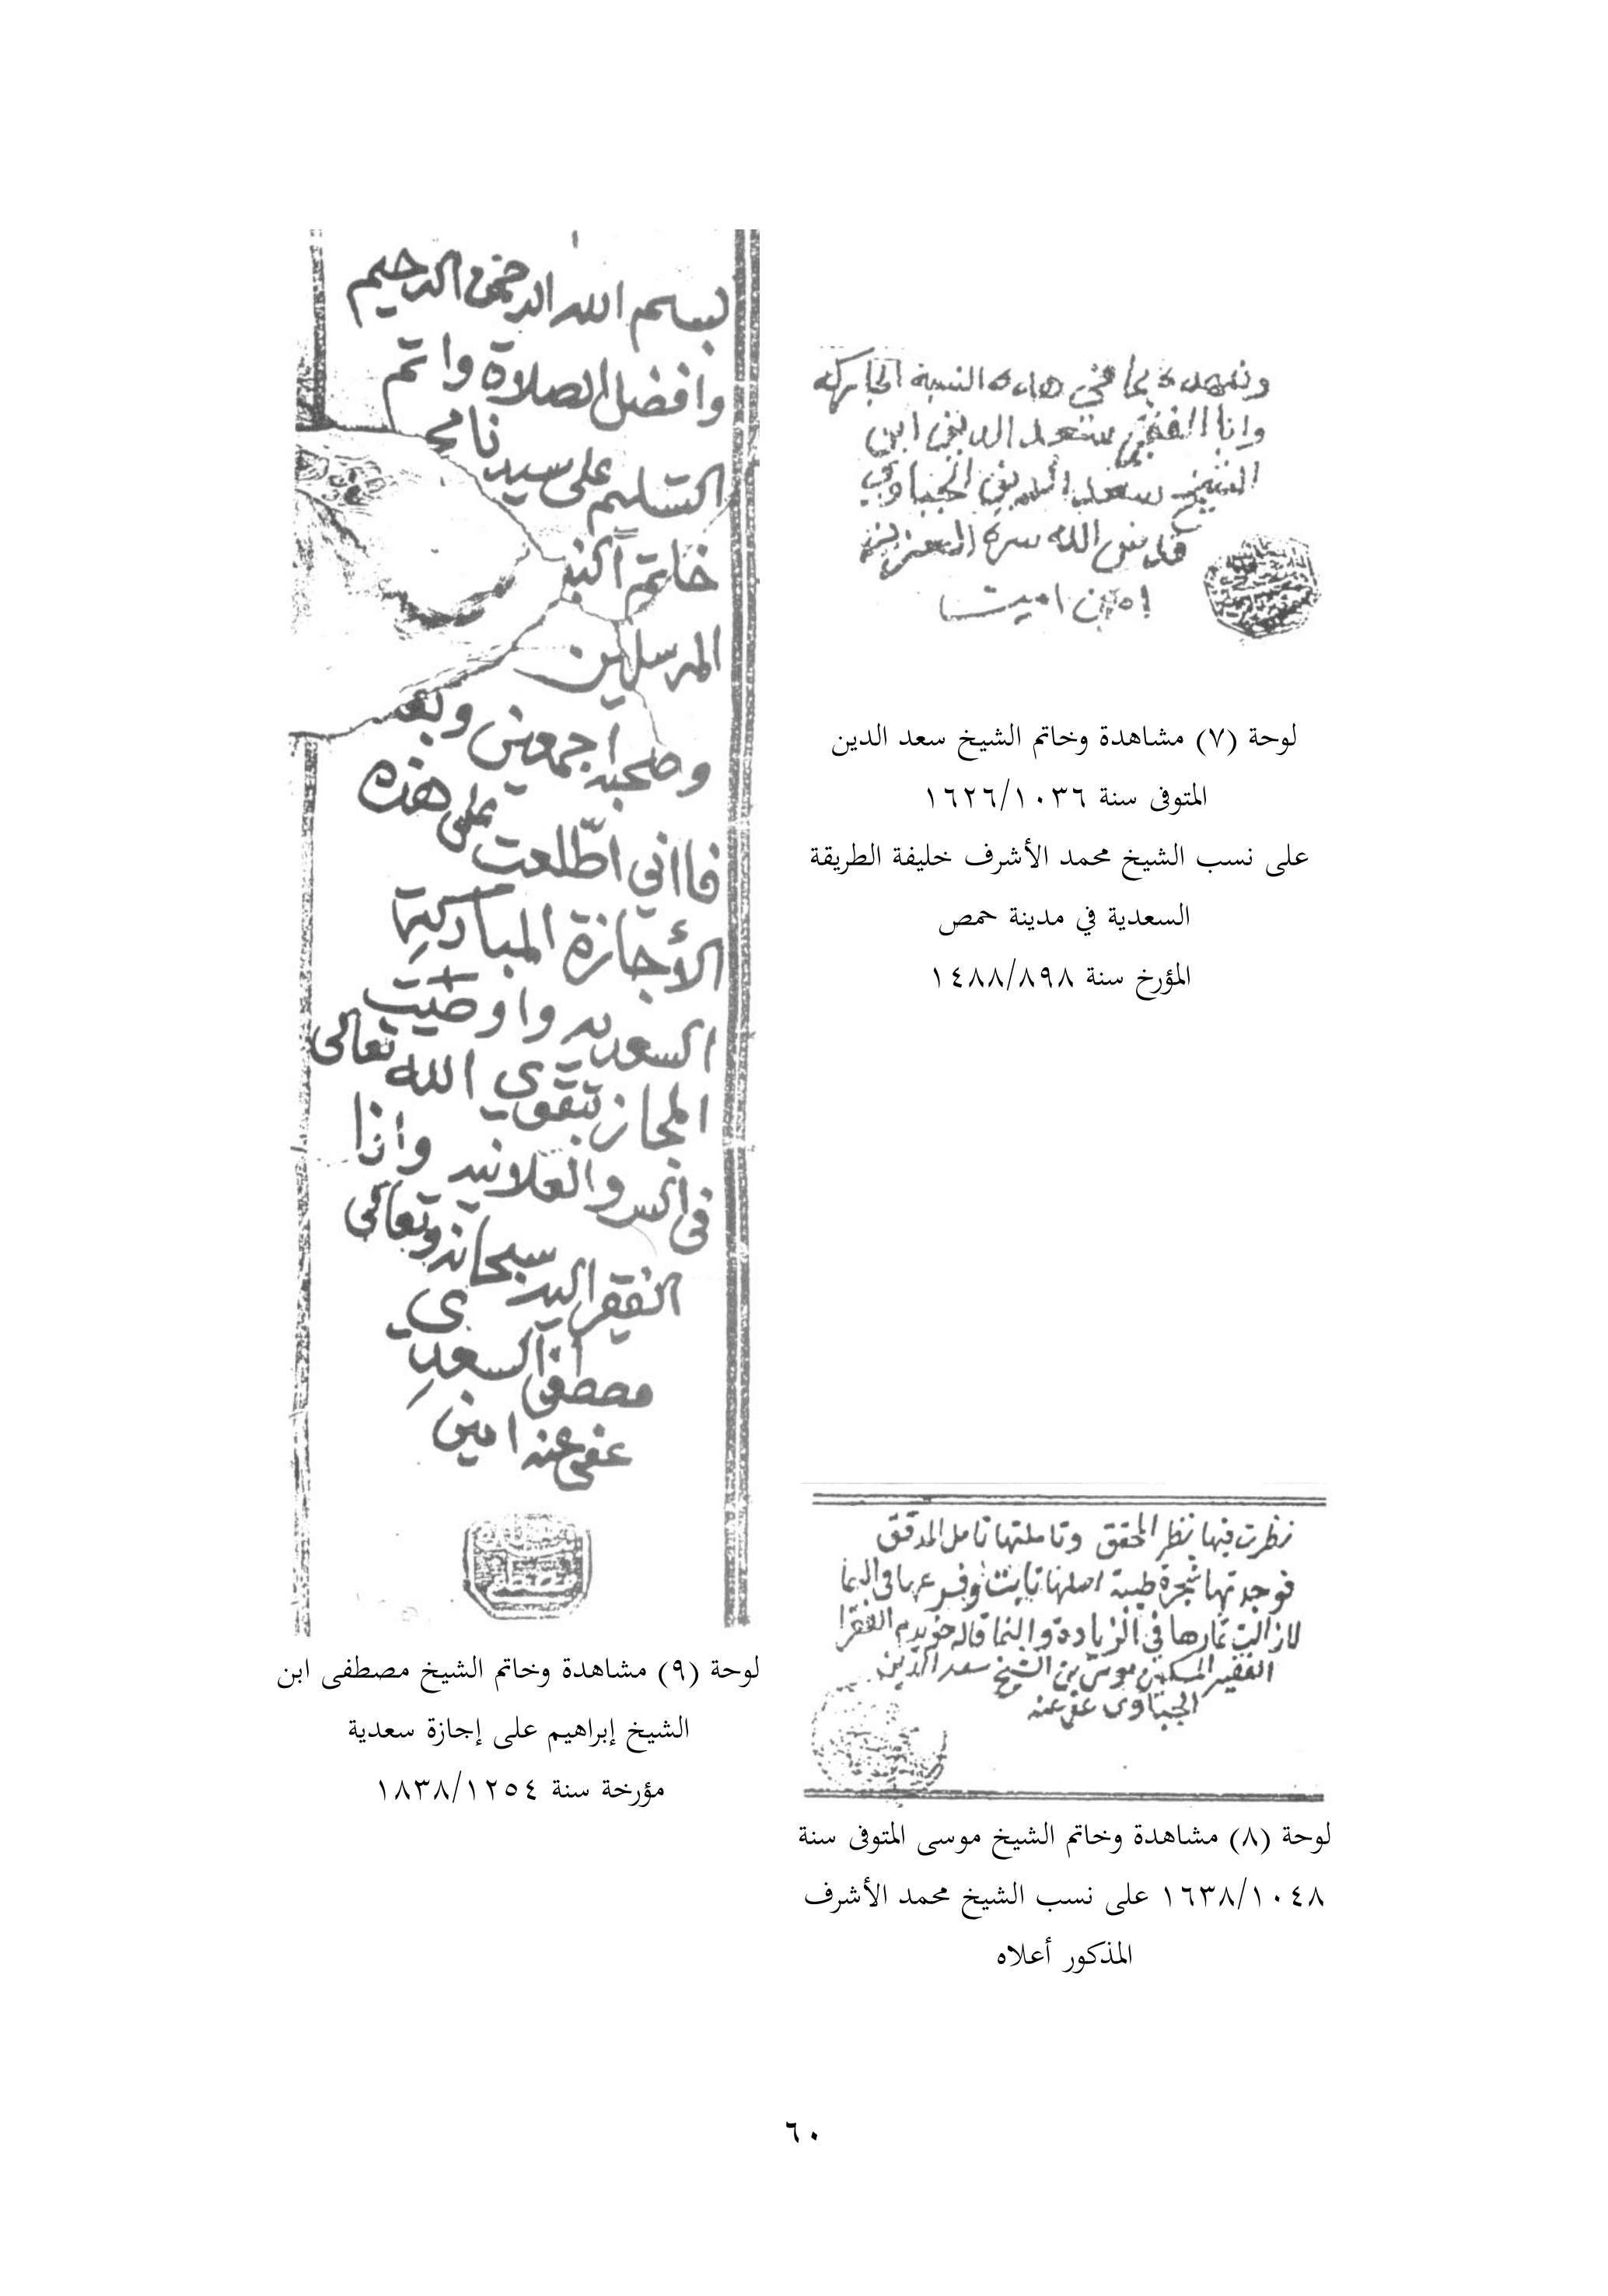 وانا الفقير سعد الدين ابن
الشيخ سعد الدين الجباوي
قدس الله سره العزيز
امين امين
لوحة (٧) مشاهدة وخاتم الشيخ سعد الدين
المتوفى سنة ١٦٢٦/١٠٣٦
على نسب الشيخ محمد الأشرف خليفة الطريقة
السعدية في مدينة حمص
المؤرخ سنة ١٤٨٨/٨٩٨
نظرت فيها نظر المحقق وتاملتها تامل المدقق
فوجدتها شجرة طيبة اصلها ثابت وفرعها في السما
لازالت ثمارها في الزيادة والنما قاله خويدم الفقرا
الفقير المسكين موسى بن الشيخ سعد الدين
الجباوى عفى عنه
لوحة (٨) مشاهدة وخاتم الشيخ موسى المتوفى سنة
١٦٣٨/١٠٤٨ على نسب الشيخ محمد الأشرف
المذكور أعلاه
بسم الله الرحمن الرحيم
وافضل الصلاة واتم
التسليم على سيدنا مح
خاتم
المرسلين
وصحبه اجمعين وبعد
فااني اطّلعت على هذه
الأجازة المباركة
السعديه واوصَّيت
المجاز بتقوى الله تعالى
في السر والعلانيه وانا
الفقير اليه سبحانه وتعالى
مصطفى السعدي
عفى عنه امين
لوحة (٩) مشاهدة وخاتم الشيخ مصطفى ابن
الشيخ إبراهيم على إجازة سعدية
مؤرخة سنة ١٨٣٨/١٢٥٤
٦٠